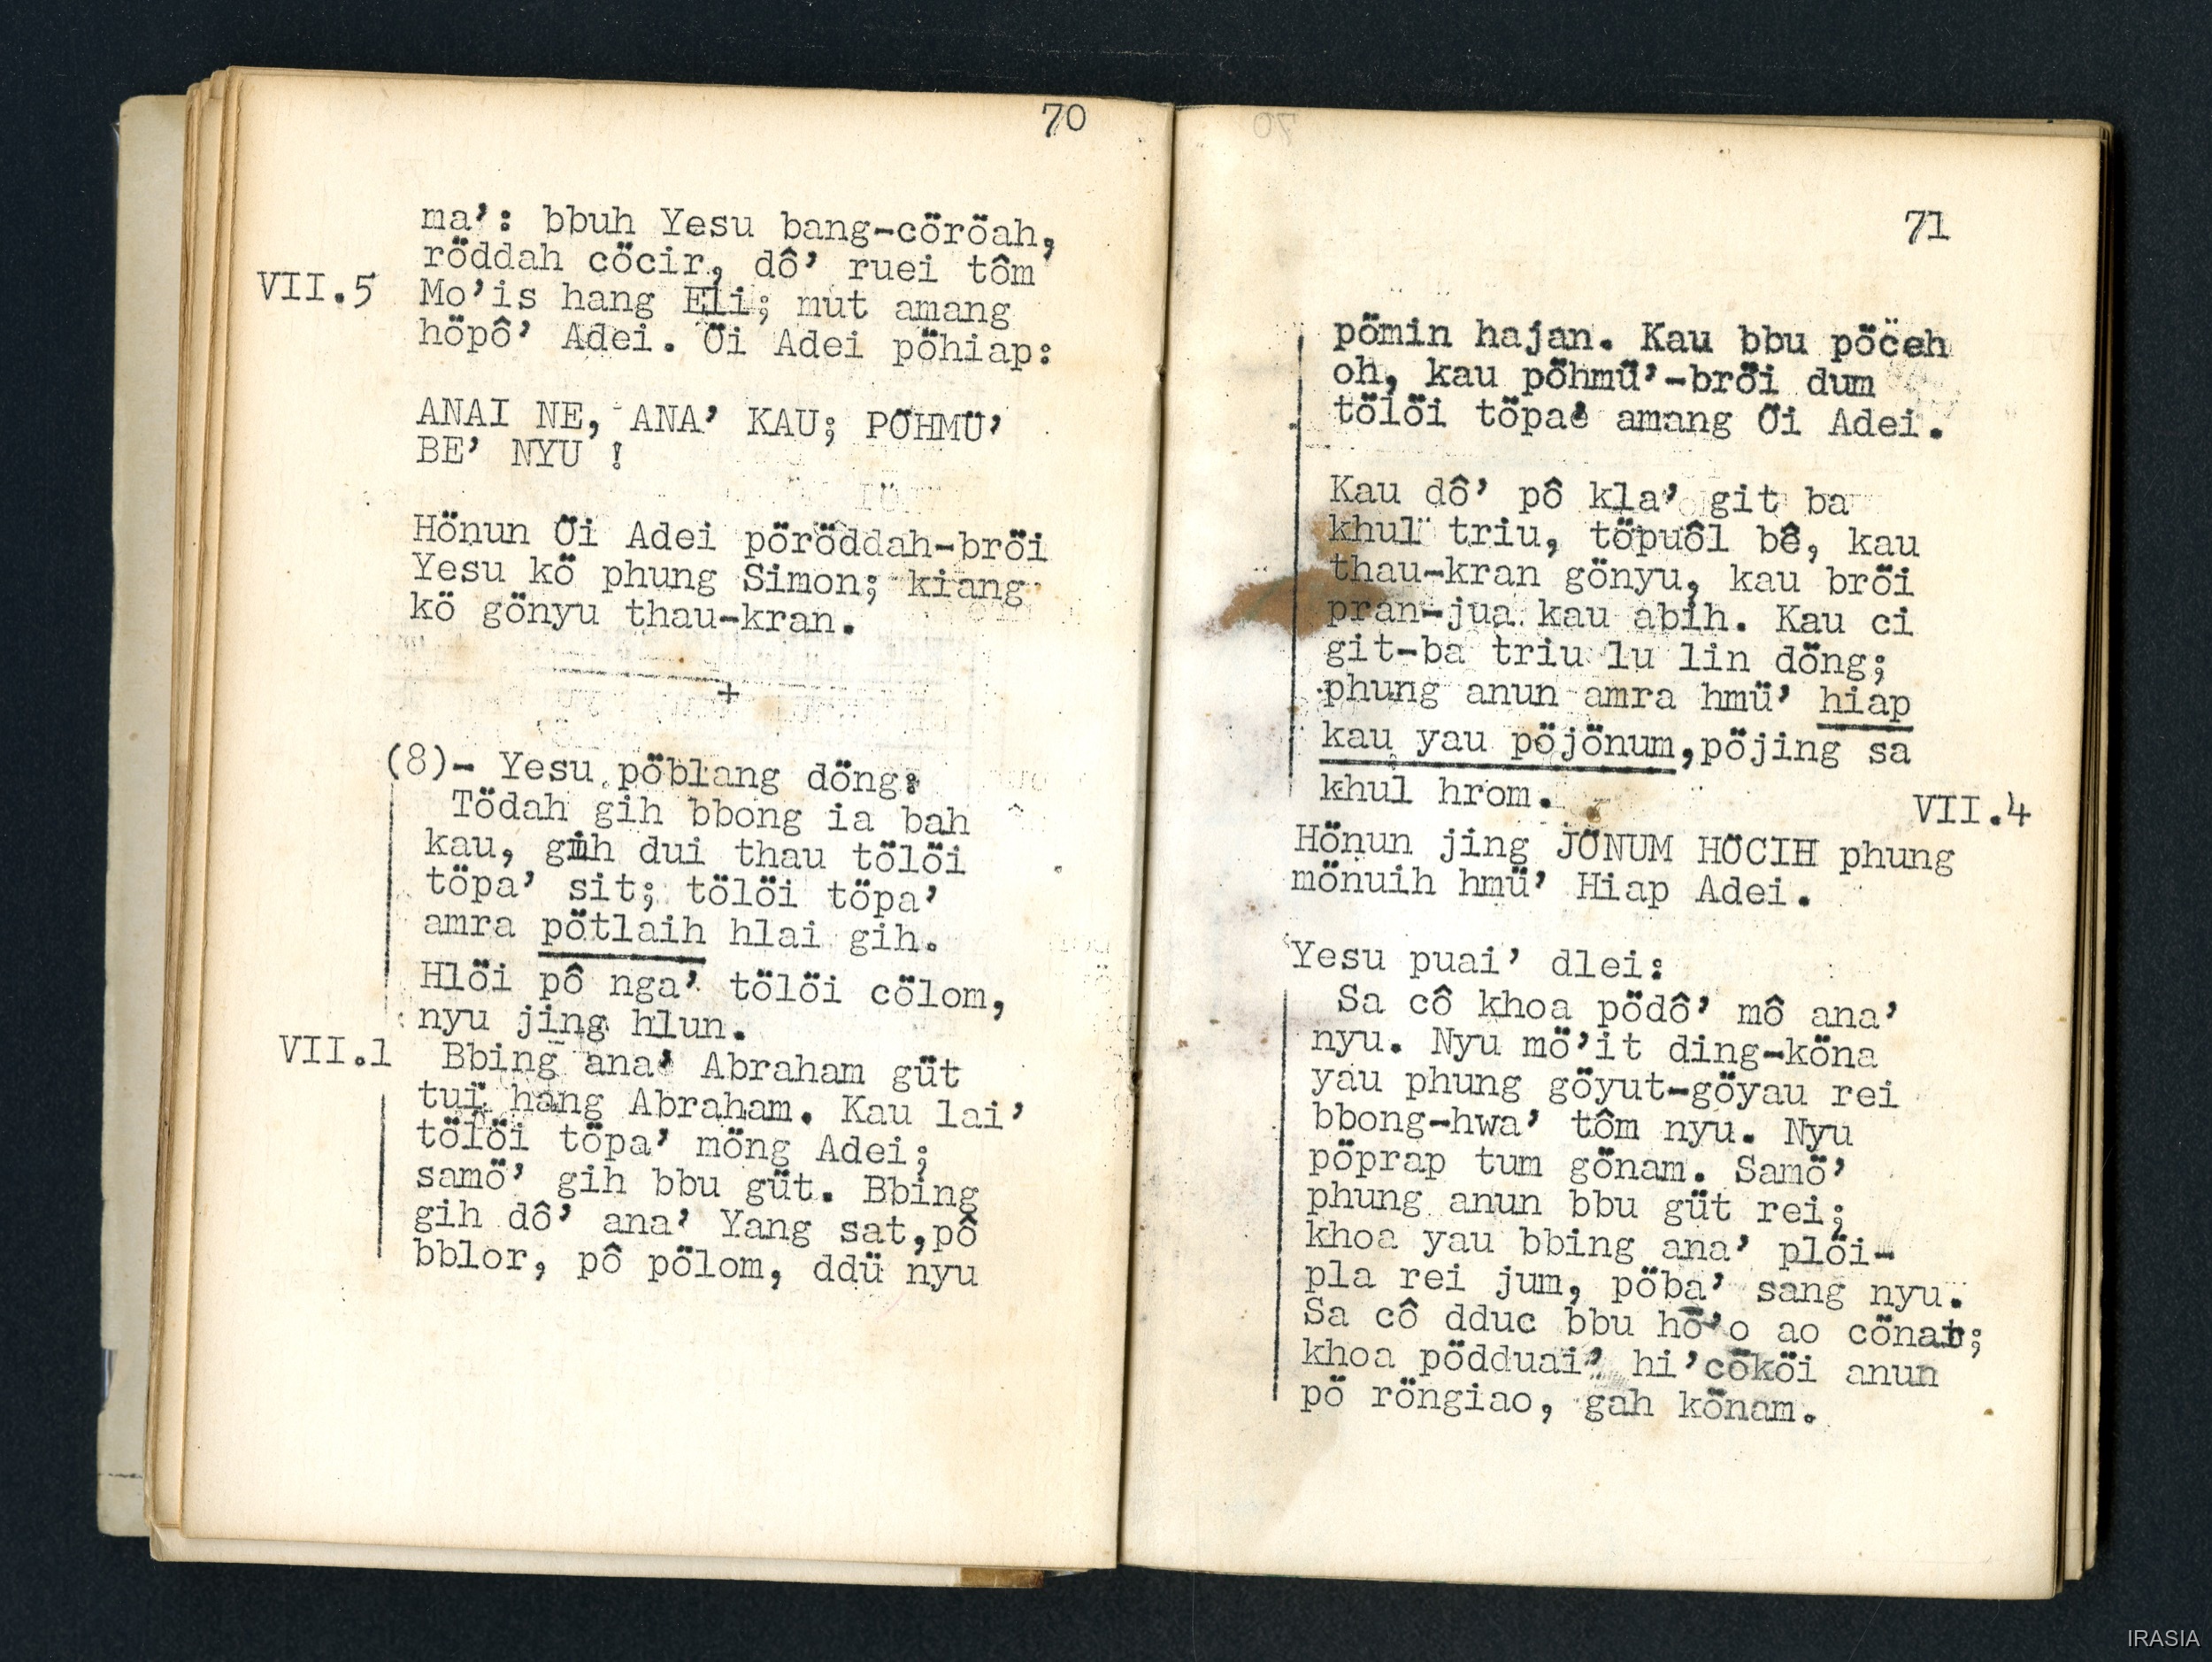 70
ma’: bbuh Yesu bang-cöröah,
röddah cöcir, dô’ ruei tôm
VII.5 Mo’is hang Eli; mut amang
höpô’ Adei. Öi Adei pöhiap:
ANAI NE, ANA’ KAU; PÖHMÜ’
BE’ NYU !
Hönun Öi Adei pöröddah-bröi
Yesu kö phung Simon; kiang
kö gönyu thau-kran.
+
(8)- Yesu pöblang döng:
Tödah gih bbong ia bah
kau, gih dui thau tölöi
töpa’ sit; tölöi töpa’
amra pötlaih hlai gih.
Hlöi pô nga’ tölöi cölom,
nyu jing hlun.
VII.1 Bbing ana’ Abraham güt
tui hang Abraham. Kau lai’
tölöi töpa’ möng Adei;
samö’ gih bbu güt. Bbing
gih dô’ ana’ Yang sat,pô
bblor, pô pölom, ddü nyu
71
pömin hajan. Kau bbu pöceh
oh, kau pöhmü’-bröi dum
tölöi töpa’ amang Öi Adei.
Kau dô’ pô kla’ git ba
khul triu, töpuôl bê, kau
thau-kran gönyu, kau bröi
pran-jua kau abih. Kau ci
git-ba triu lu lin döng;
phung anun amra hmü’ hiap
kau yau pöjönum,pöjing sa
khul hrom.
VII.4
Hönun jing JÖNUM HÖCIH phung
mönuih hmü’ Hiap Adei.
Yesu puai’ dlei:
Sa cô khoa pödô’ mô ana’
nyu. Nyu mö’it ding-köna
yau phung göyut-göyau rei
bbong-hwa’ tôm nyu. Nyu
pöprap tum gönam. Samö’
phung anun bbu güt rei;
khoa yau bbing ana’ plöi-
pla rei jum, pöba’ sang nyu.
Sa cô dduc bbu hö’o ao cönat;
khoa pödduai’ hi’cököi anun
pö röngiao, gah könam.
IRASIA